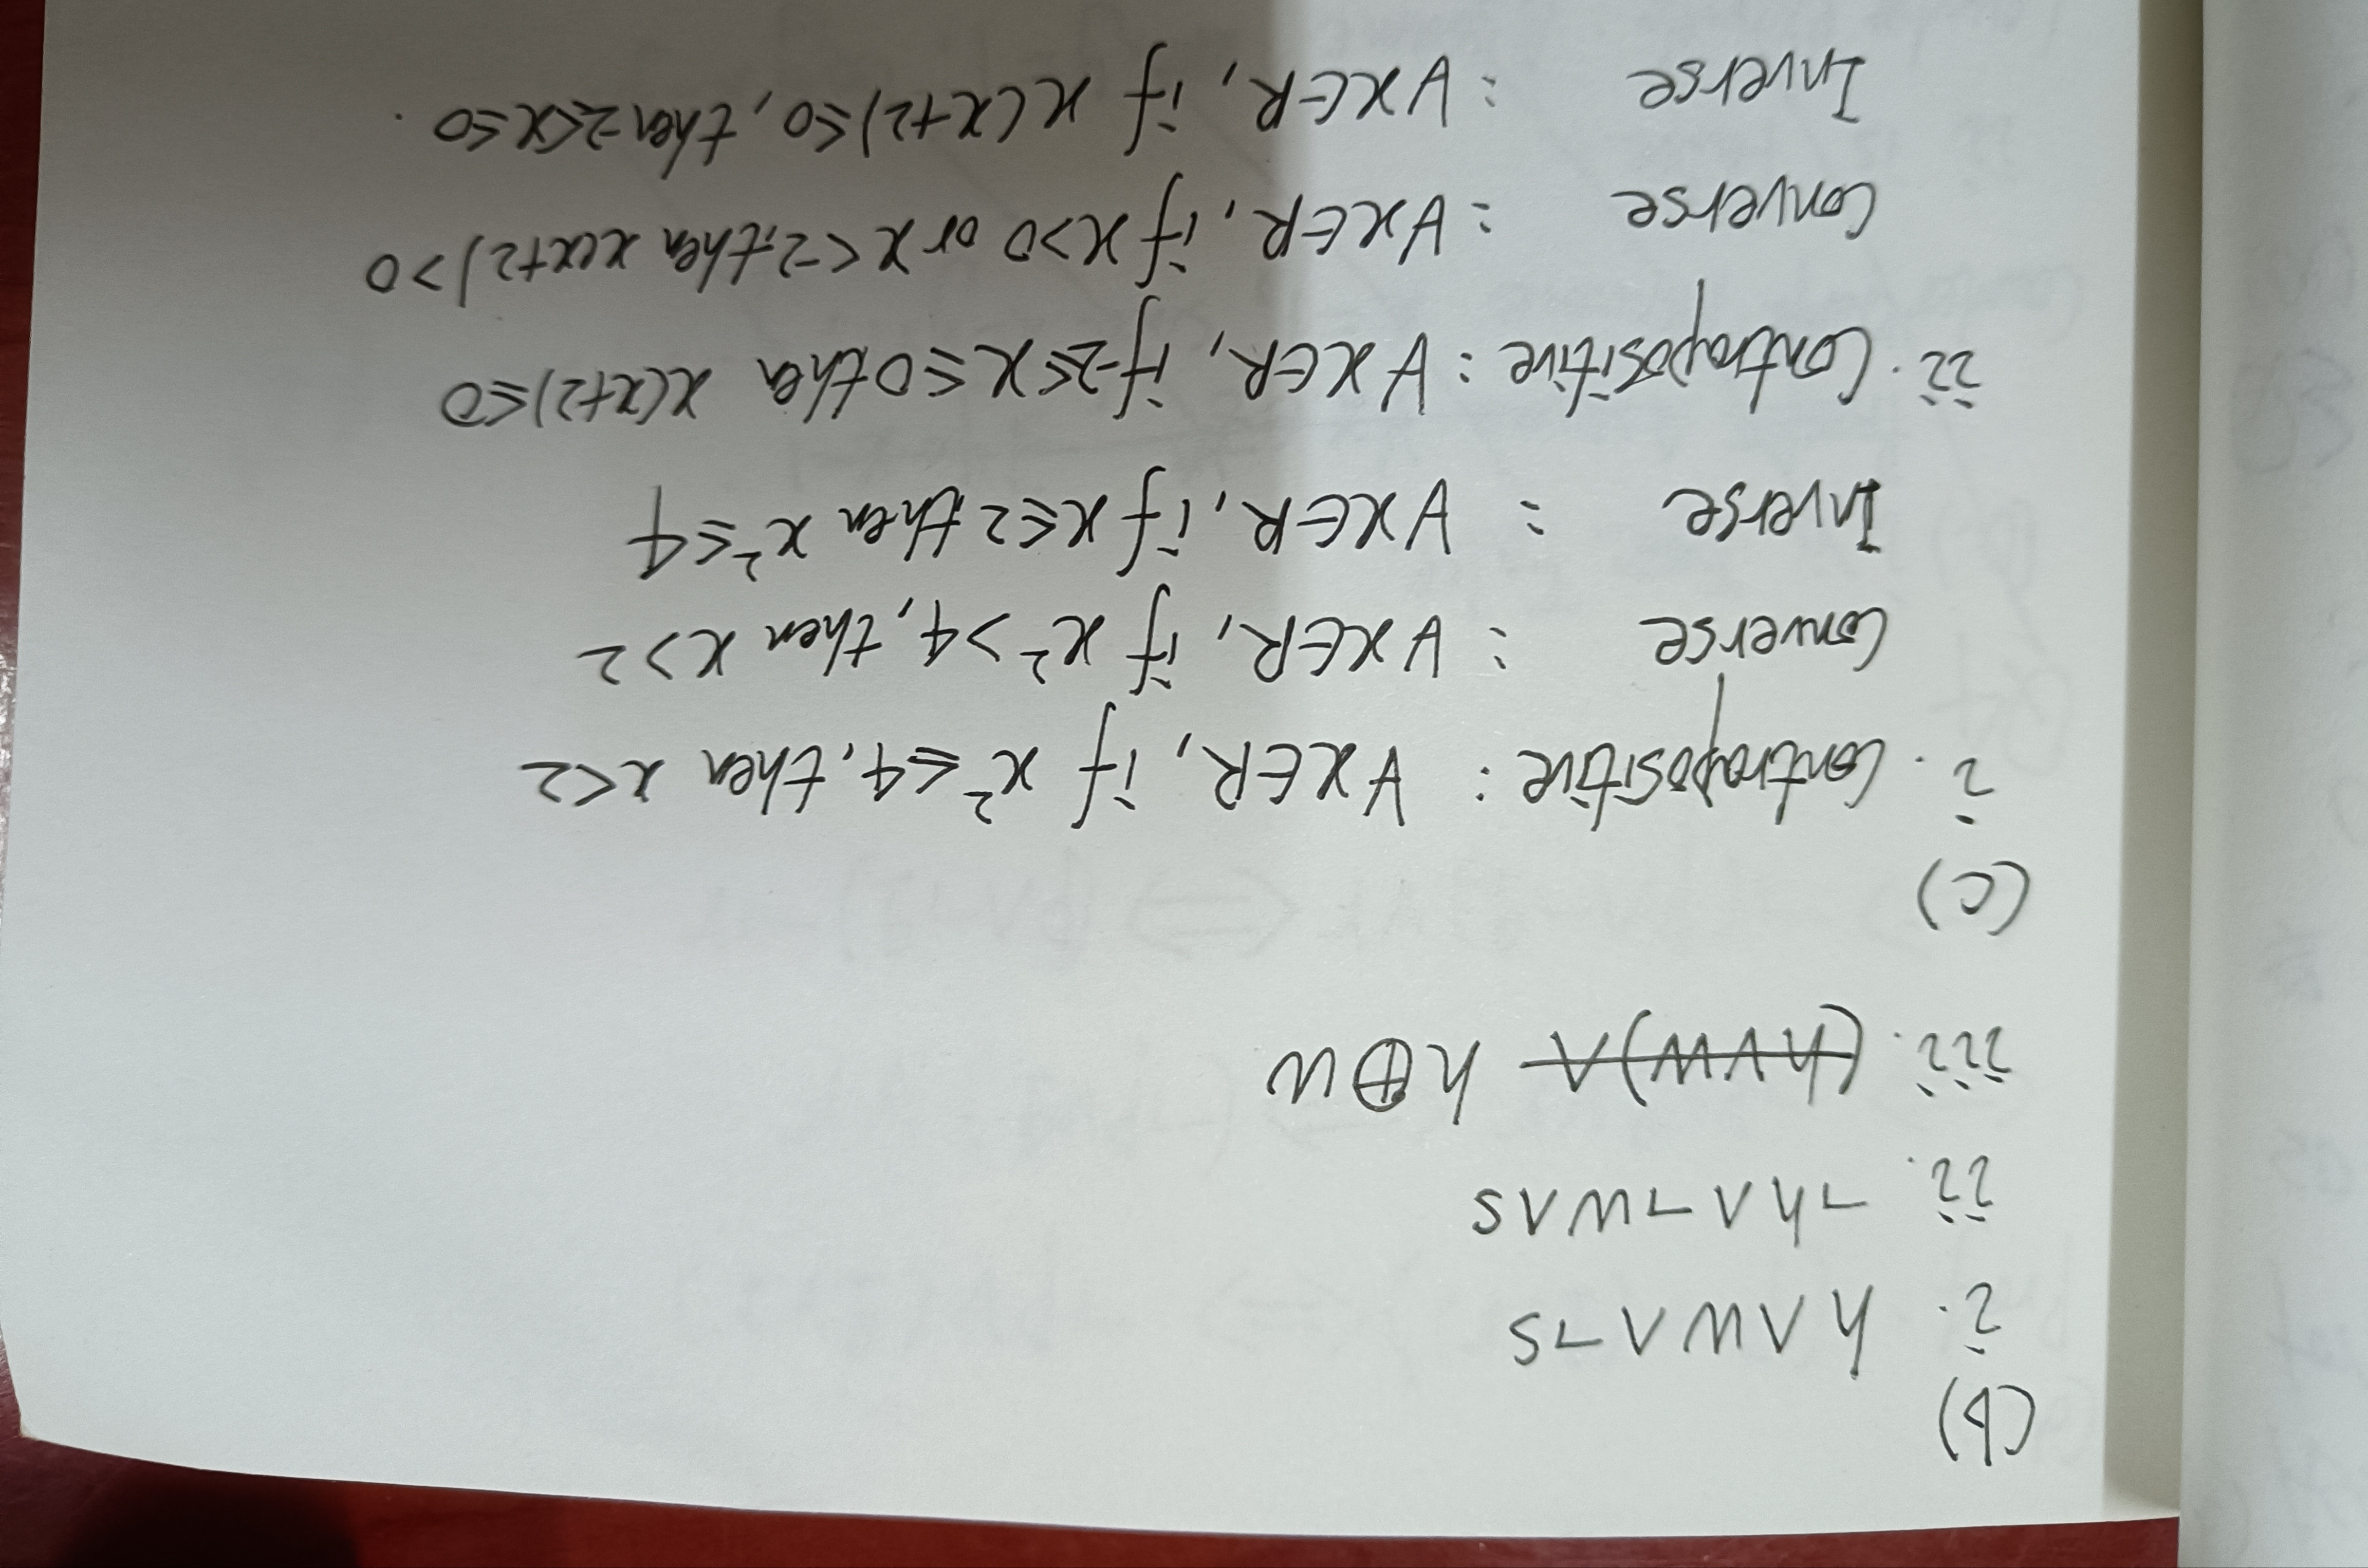 (b)
i. h∧w∧¬s
ii. ¬h∧¬w∧s
iii. (h∨w)∧ h⊕w
(c)
i. Contrapositive: ∀x∈R, if x²≤4, then x<2
Converse : ∀x∈R, if x²>4, then x>2
Inverse : ∀x∈R, if x≤2 then x²≤4
ii. Contrapositive: ∀x∈R, if -2≤x≤0 then x(x+2)≤0
Converse : ∀x∈R, if x>0 or x<-2, then x(x+2)>0
Inverse : ∀x∈R, if x(x+2)≤0, then -2≤x≤0.